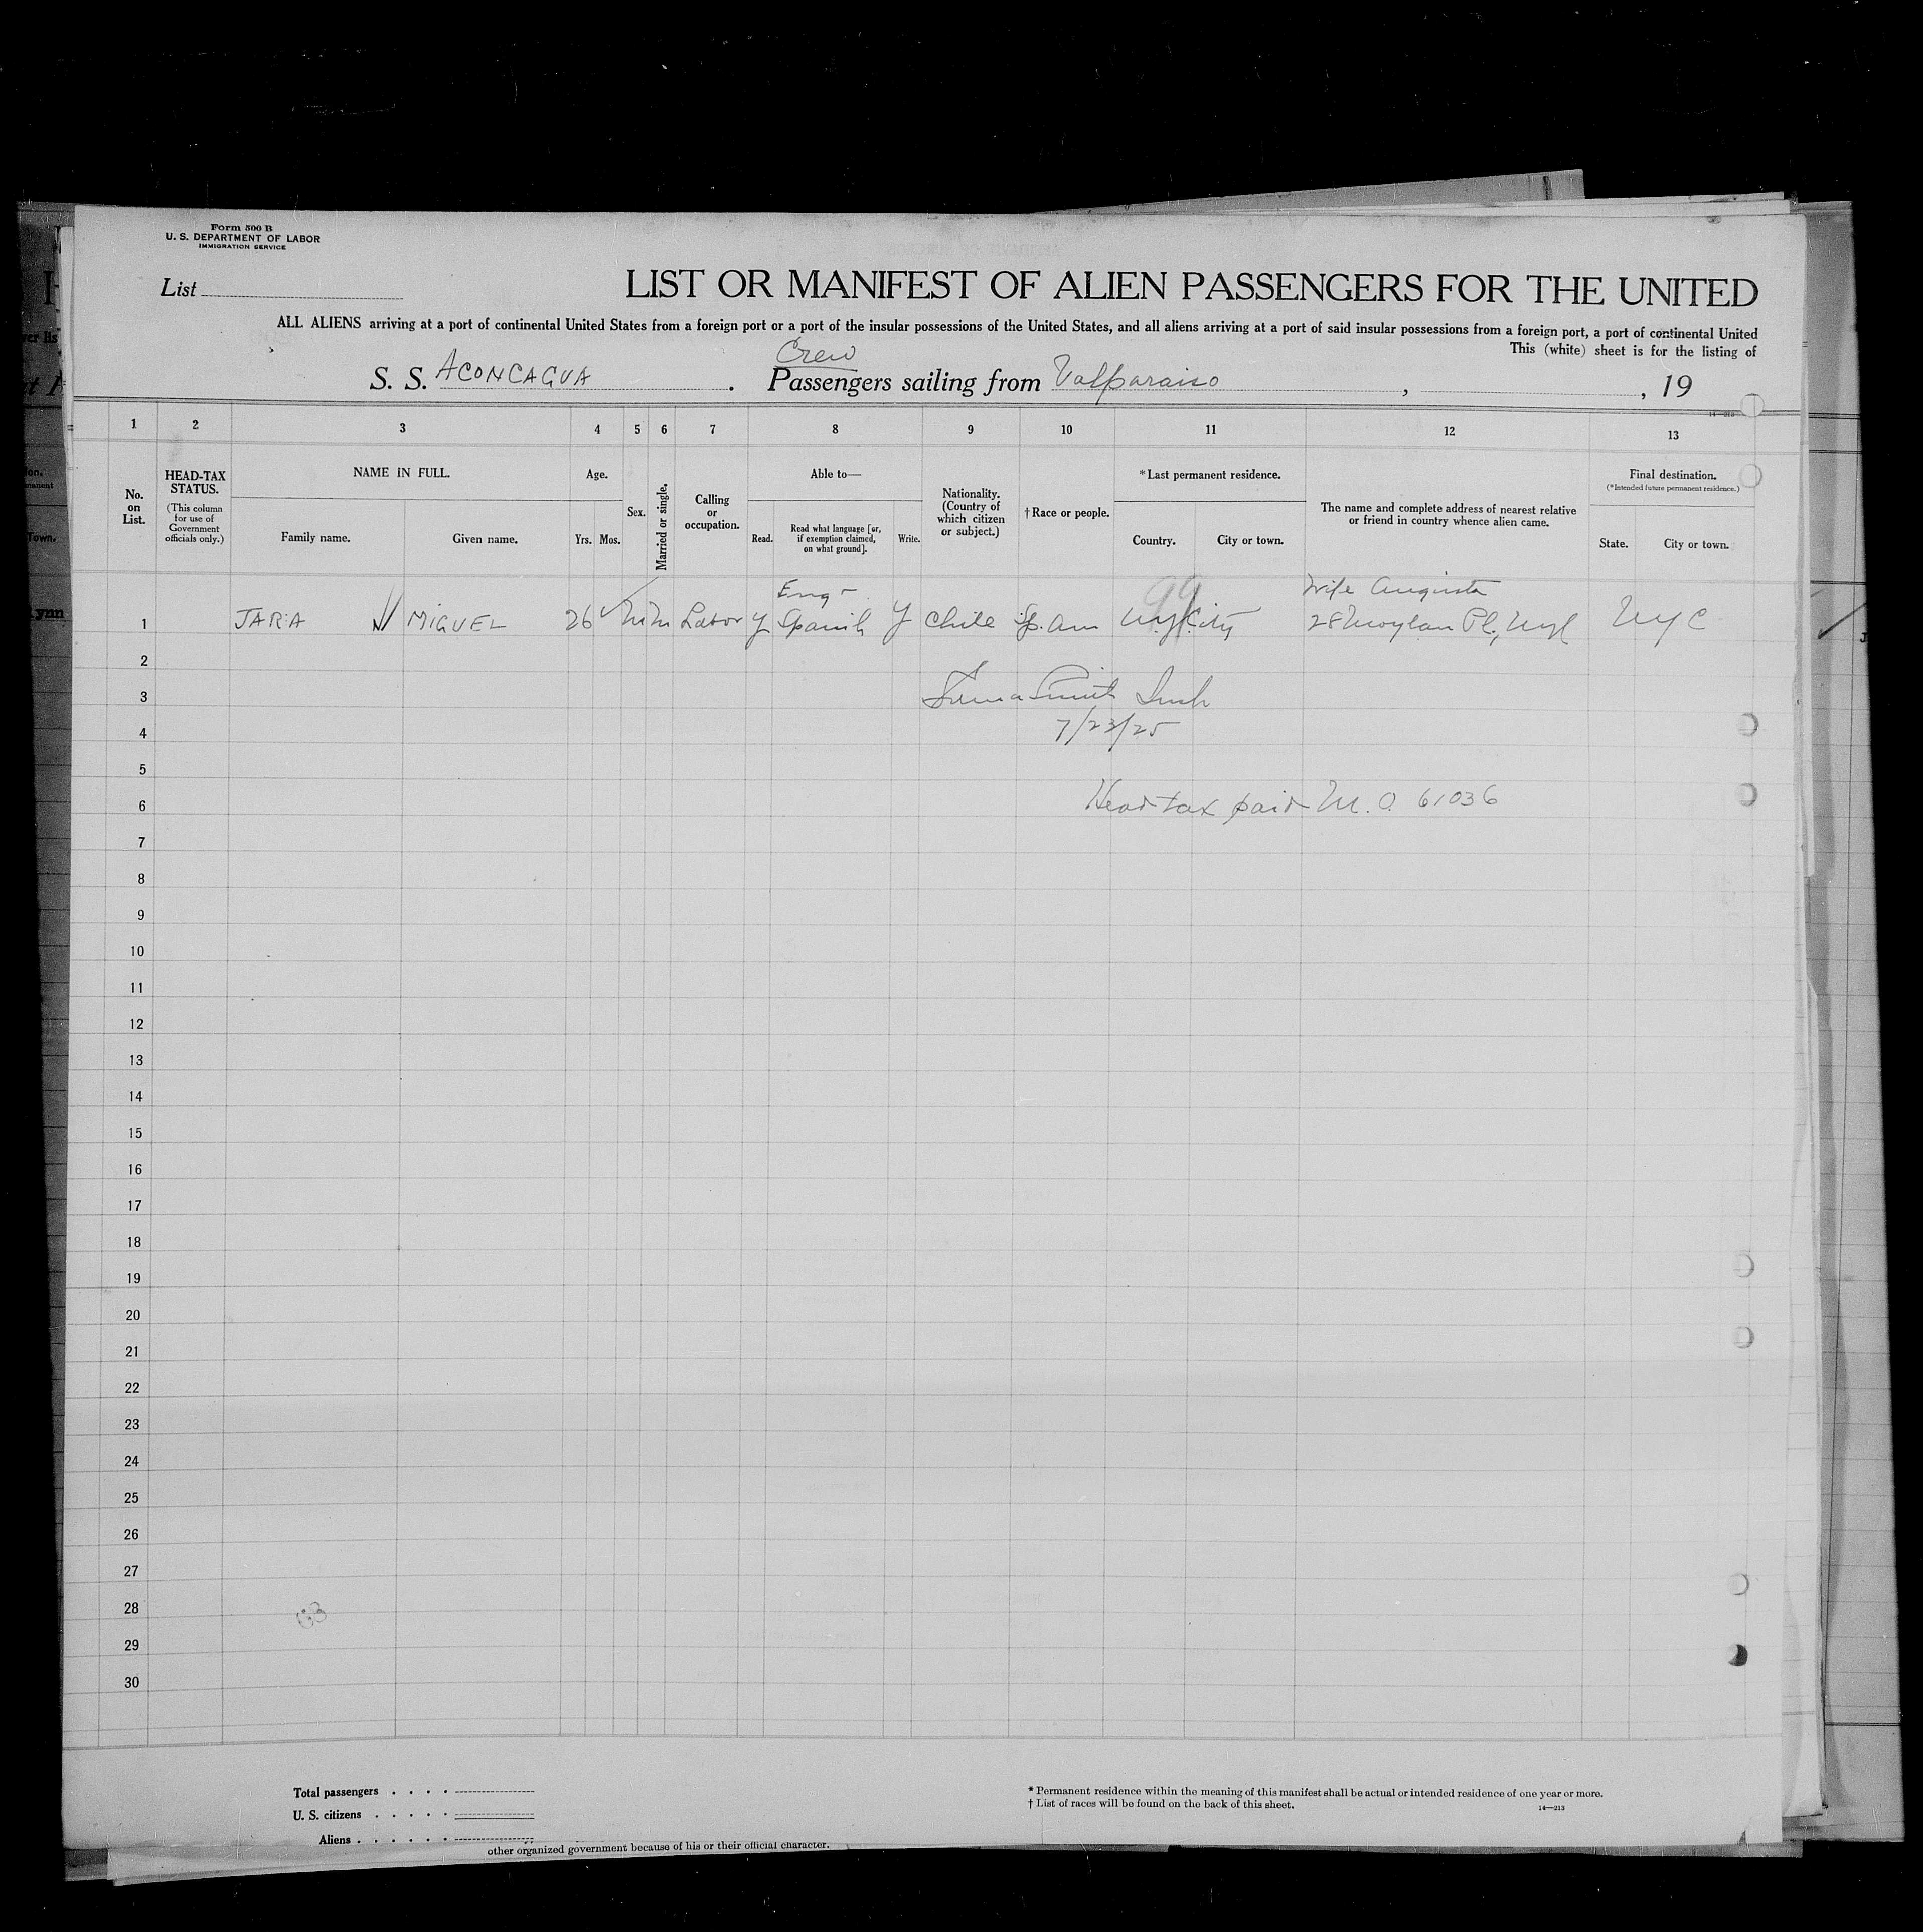 Form 500 B
U. S. DEPARTMENT OF LABOR
IMMIGRATION SERVICE
List
LIST OR MANIFEST OF ALIEN PASSENGERS FOR THE UNITED
ALL ALIENS arriving at a port of continental United States from a foreign port or a port of the insular possessions of the United States, and all aliens arriving at a port of said insular possessions from a foreign port, a port of continental United
This (white) sheet is for the listing of
Crew
S. S. ACONCAGUA. Passengers sailing from Valparaiso, , 19
14—213
1 2 3 4 5 6 7 8 9 10 11 12 13
No. on List.
HEAD-TAX STATUS.
(This column for use of Government officials only.)
NAME IN FULL.
Family name. Given name.
Age.
Yrs. Mos.
Sex.
Married or single.
Calling or occupation.
Able to—
Read. Read what language [or, if exemption claimed, on what ground]. Write.
Nationality. (Country of which citizen or subject.)
†Race or people.
*Last permanent residence.
Country. City or town.
The name and complete address of nearest relative or friend in country whence alien came.
Final destination.
(*Intended future permanent residence.)
State. City or town.
Eng - 99 Wife Augusta
1 JARA MIGUEL 26 m m Labor y Spanish y Chile Sp. Am N.Y. City 28 Moylan Pl., NYC NYC
2
3 Insp
4 7/23/25
5
6 Head tax paid M. O. 61036
7
8
9
10
11
12
13
14
15
16
17
18
19
20
21
22
23
24
25
26
27
28
29
30
Total passengers . . . .
U. S. citizens . . . . .
Aliens . . . . . .
* Permanent residence within the meaning of this manifest shall be actual or intended residence of one year or more.
† List of races will be found on the back of this sheet.
14—213
other organized government because of his or their official character.